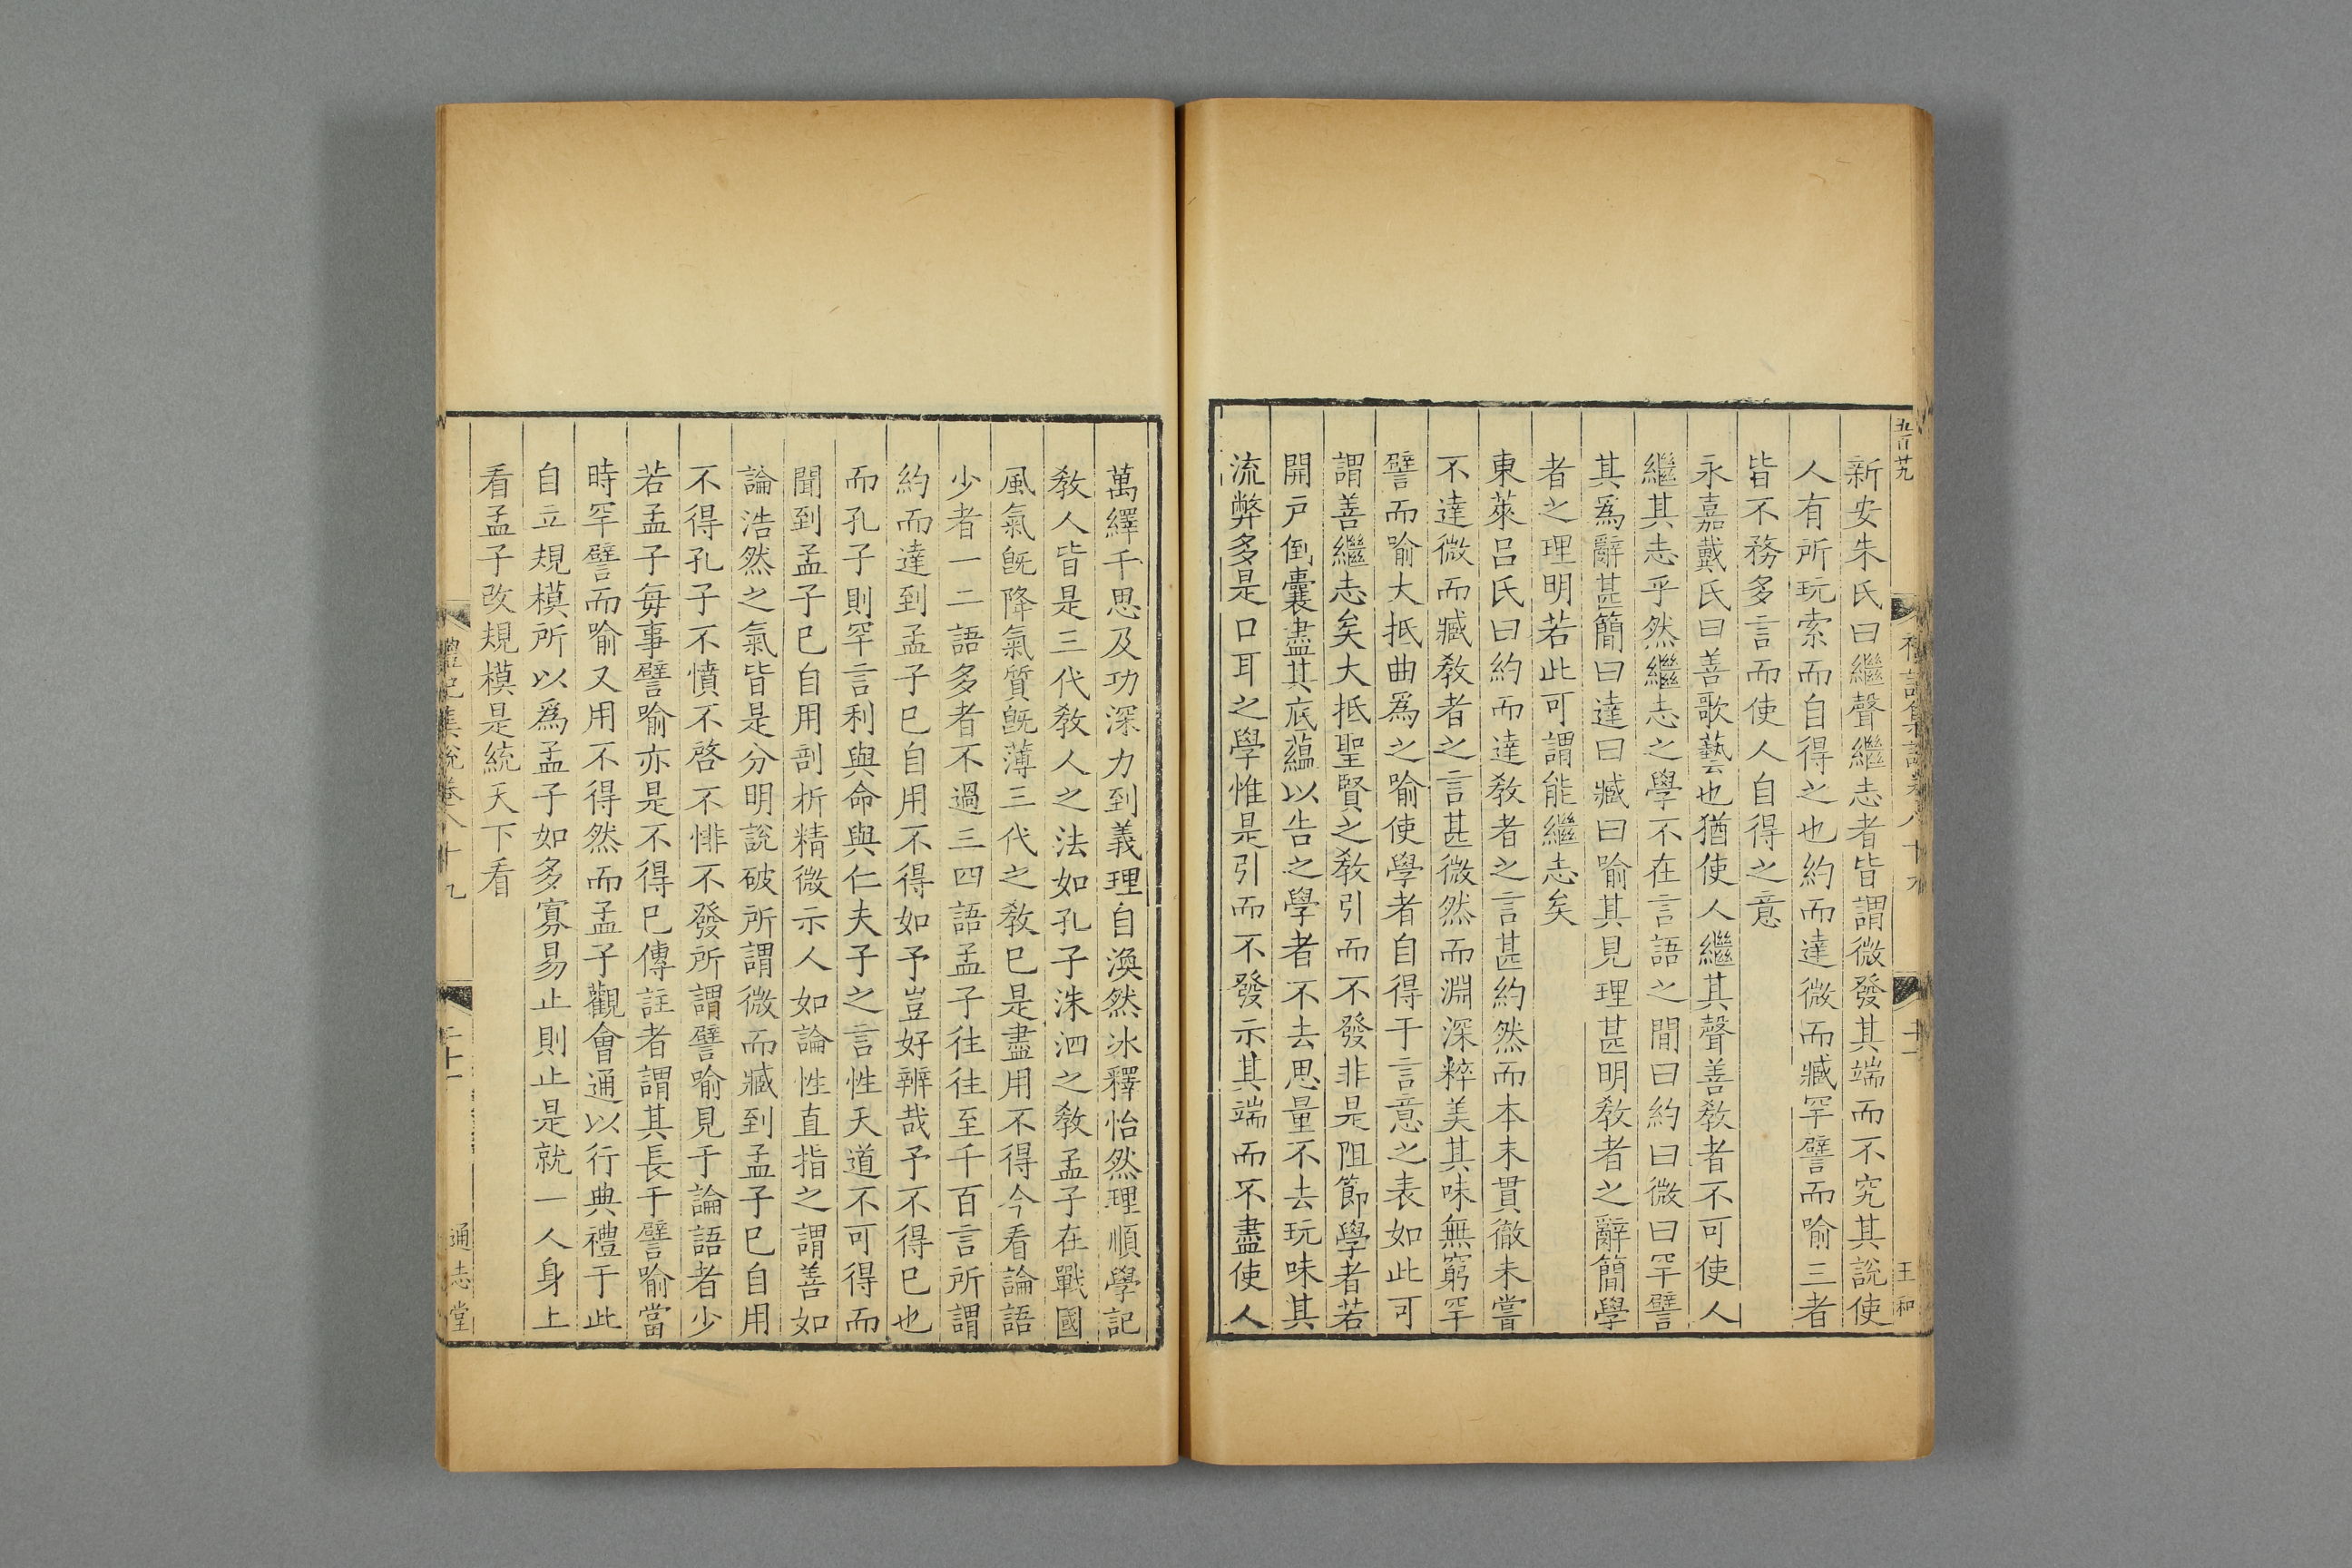 新安朱氏曰繼聲繼志者皆謂微發其端而不究其說使
人有所玩索而自得之也約而達微而臧罕譬而喻三者
皆不務多言而使人自得之意
永嘉戴氏曰善歌藝也猶使人繼其聲善敎者不可使人
繼其志乎然繼志之學不在言語之間曰約曰微曰罕譬
其爲辭甚簡曰達曰臧曰喻其見理甚明敎者之辭簡學
者之理明若此可謂能繼志矣
東萊呂氏曰約而達敎者之言甚約然而本末貫徹未嘗
不達微而臧敎者之言甚微然而淵深粹美其味無窮罕
譬而喻大抵曲爲之喻使學者自得于言意之表如此可
謂善繼志矣大抵聖賢之敎引而不發非是阻節學者若
開戶倒囊盡其底蘊以告之學者不去思量不去玩味其
流弊多是口耳之學惟是引而不發示其端而不盡使人
萬繹千思及功深力到義理自渙然冰釋怡然理順學記
敎人皆是三代敎人之法如孔子洙泗之敎孟子在戰國
風氣旣降氣質旣薄三代之敎已是盡用不得今看論語
少者一二語多者不過三四語孟子往往至千百言所謂
約而達到孟子已自用不得如予豈好辨哉予不得已也
而孔子則罕言利與命與仁夫子之言性天道不可得而
聞到孟子已自用剖析精微示人如論性直指之謂善如
論浩然之氣皆是分明說破所謂微而臧到孟子已自用
不得孔子不憤不啓不悱不發所謂譬喻見于論語者少
若孟子每事譬喻亦是不得已傳註者謂其長于譬喻當
時罕譬而喻又用不得然而孟子觀會通以行典禮于此
自立規模所以爲孟子如多寡易止則止是就一人身上
看孟子改規模是統天下看
禮記集說卷八十九
二十一
通志堂